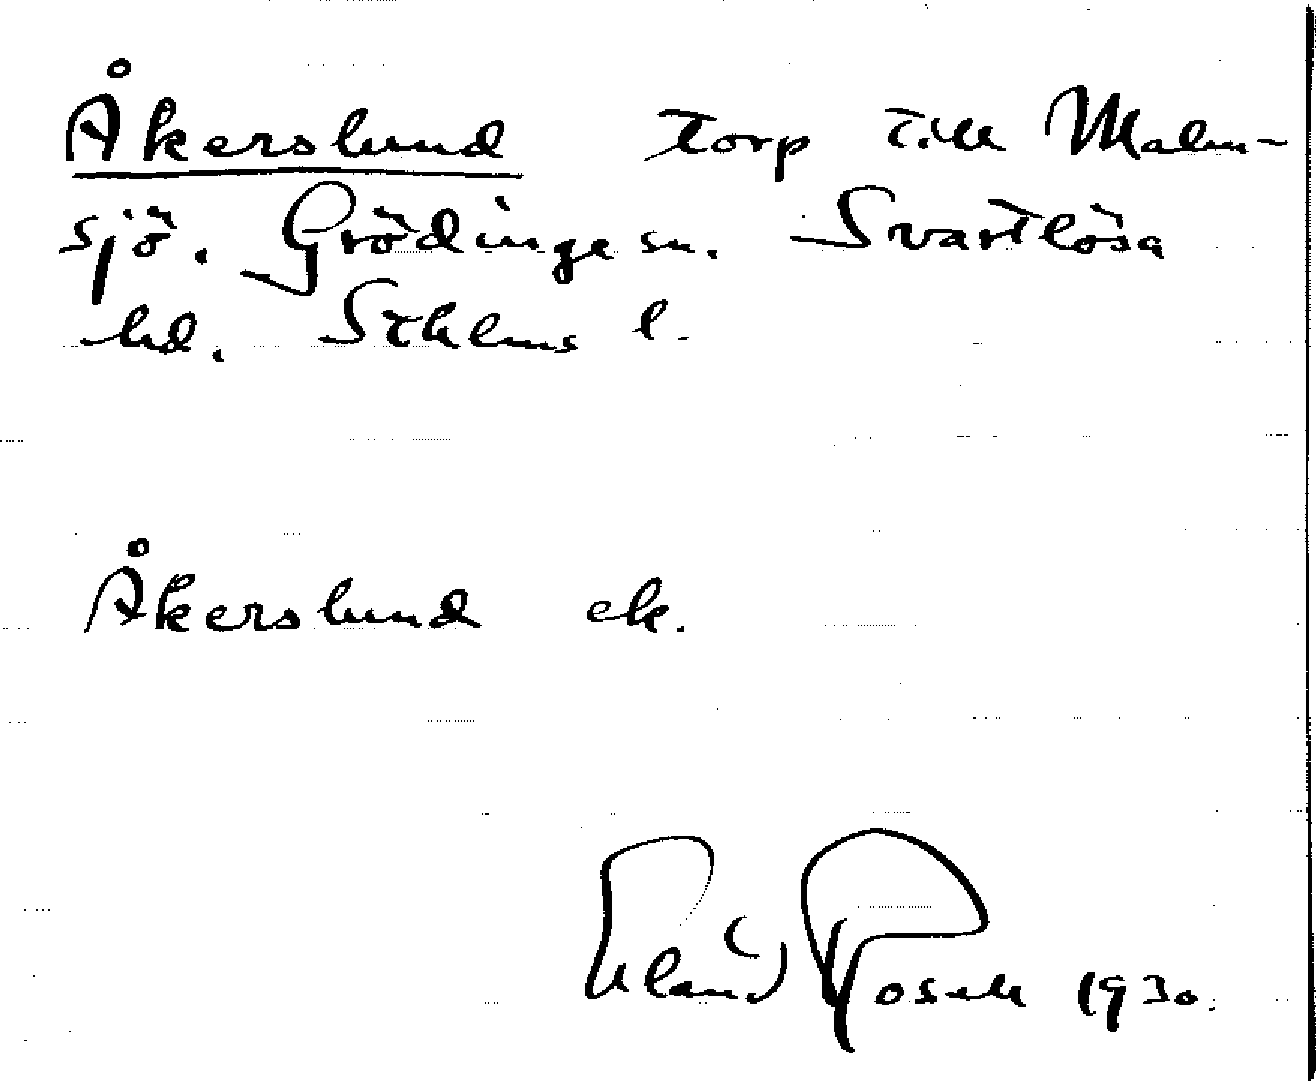 Åkerslund torp till Malm-
sjö. Grödinge sn. Svartlösa
hd. Sthlms l.
Åkerslund ek.
Erland Rosell 1930.